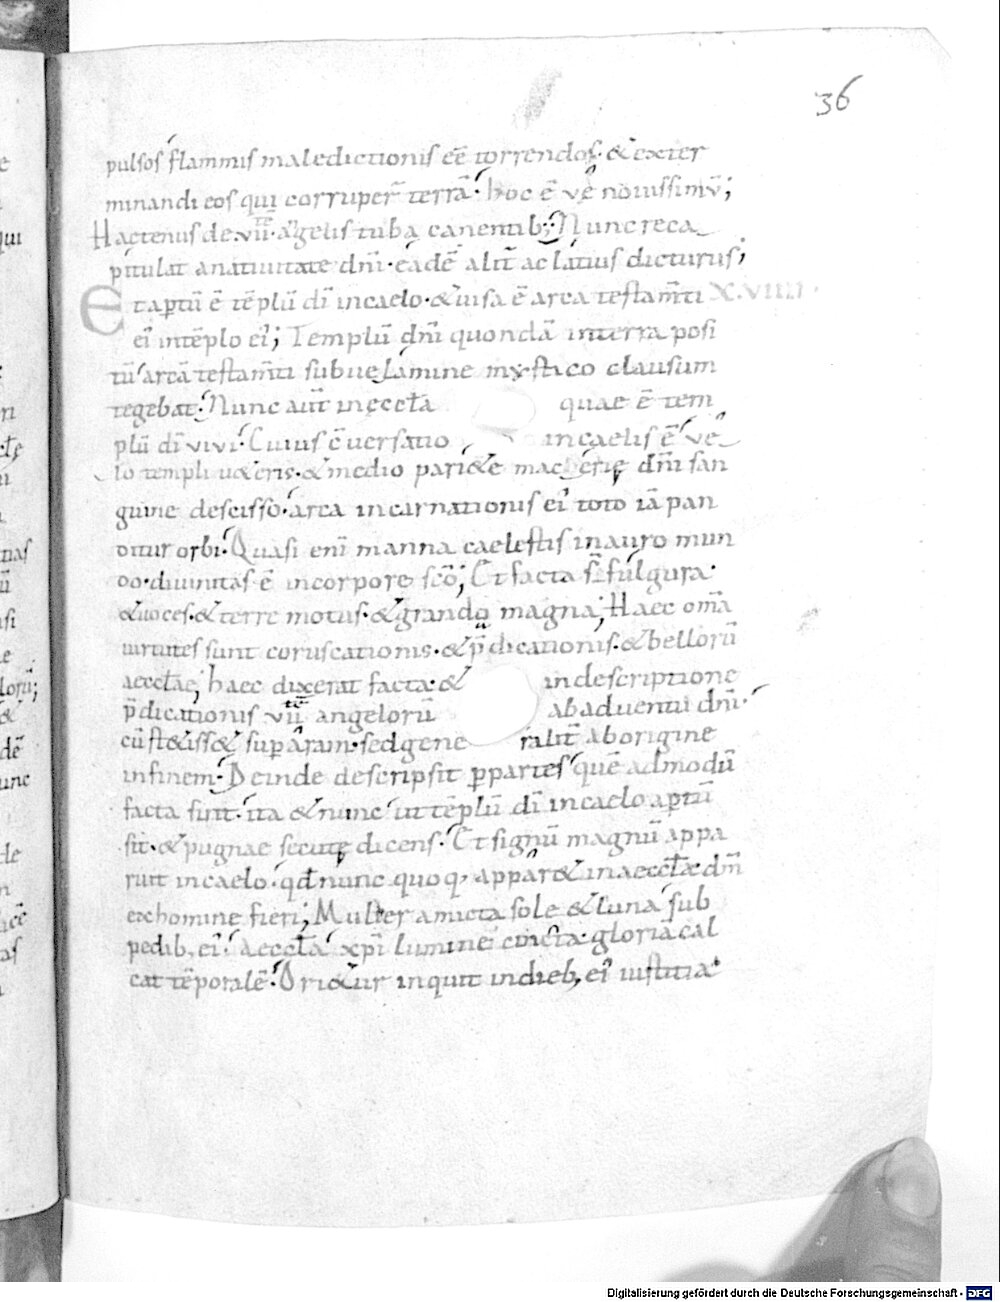 36
pulsos flammis maledictionis eē torrendos. & exter
minandi eos qui corruper̄ terrā. hoc ē vę̄ novissimū;
Hactenus de .vii. angelis tuba canentib; Nunc reca
pitulat anativitate dn̄i. eadē alit̄ ac latius dicturus;
Et aptū ē tēplū dī incaelo. & visa ē arca testam̄ti X.VIIII.
eī intēplo eī; Templū dn̄i quondā interra posi
tū arcā testam̄ti subvelamine mystico clausum
tegebat. Nunc aūt inęccła quae ē tem
plū dī vivi. Cuius cversatio incaelis ē ve
lo templi veteris. & medio pariete macerię dn̄i san
guine descisso. arca incarnationis eī toto iā pan
ditur orbi. Quasi enī manna caelestis inauro mun
do. divinitas ē incorpore scō; Et facta s̄ fulgura.
& voces. & terre motus. & grando magna; Haec om̄a
virtutes sunt coruscationis. & p̄dicationis. & bellorū
aeccłae; haec dixerat facta. & indescriptione
p̄dicationis vii angelorū abadventu dn̄i.
cū st&iss& sup aram. sedgene ralit aborigine
infinem. Deinde descripsit ppartes quē admodū
facta sint. ita & nunc ut tēplū dī incaelo aptū
sit. & pugnae secutę dicens. Et signū magnū appa
ruit incaelo. qd nunc quoq, appar& inaeccła. dn̄m
exhomine fieri; Mulier amicta sole & luna sub
pedib, eī. aeccła xp̄i lumine cincta. gloriā cal
cat tēporalē. Ori&ur inquit indieb, eī iustitia
Digitalisierung gefördert durch die Deutsche Forschungsgemeinschaft - DFG